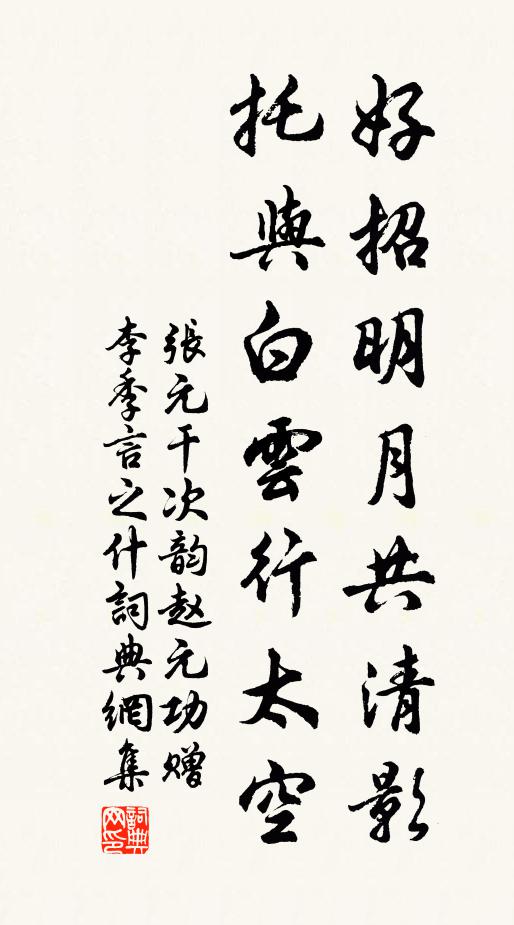 好招明月共清影
托與白雲行太空
張元干次韵赵元功赠
李季言之什詞典網集
詞典
网印